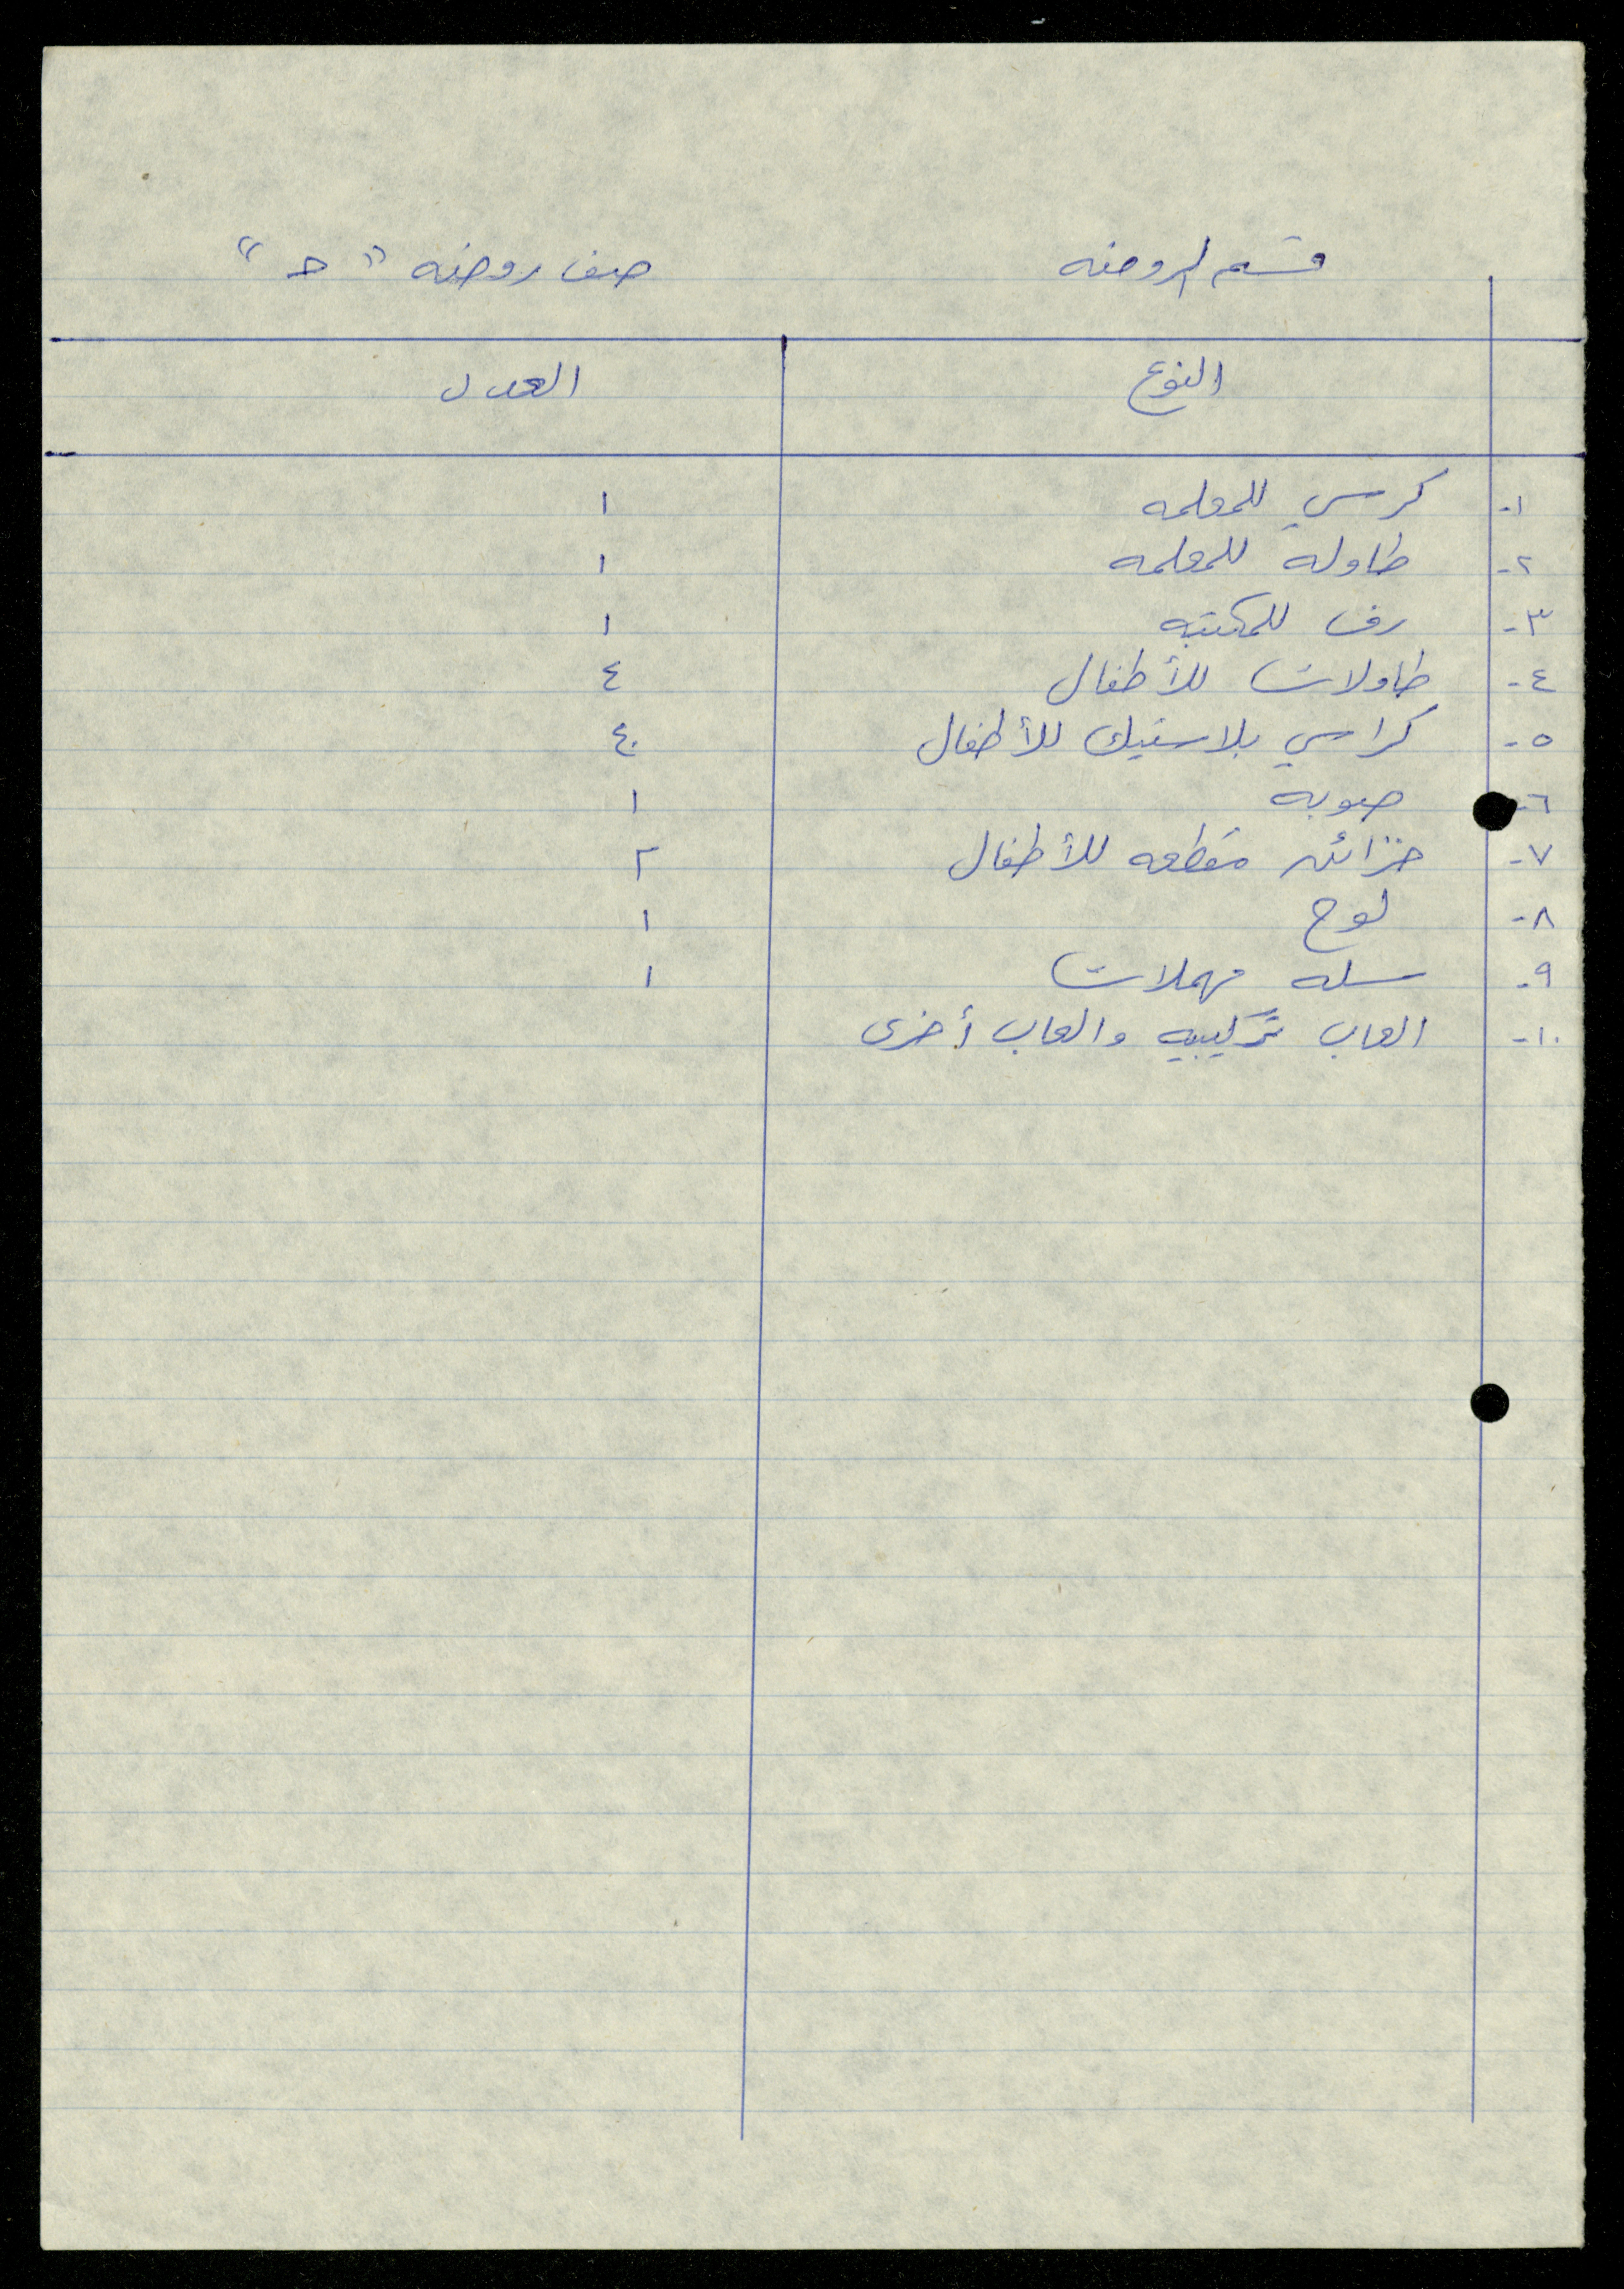 قسم الروضه صف روضه "ح"
النوع العدد
١- كرسي للمعلمه ١
٢- طاوله للمعلمه ١
٣- رف للمكتبه ١
٤- طاولات للأطفال ٤
٥- كراسي بلاستيك للأطفال ٤٠
٦- صوبه ١
٧- خزائن مقطعه للأطفال ٢
٨- لوح ١
٩- سله مهملات ١
١٠- العاب تركيبيه والعاب أخرى